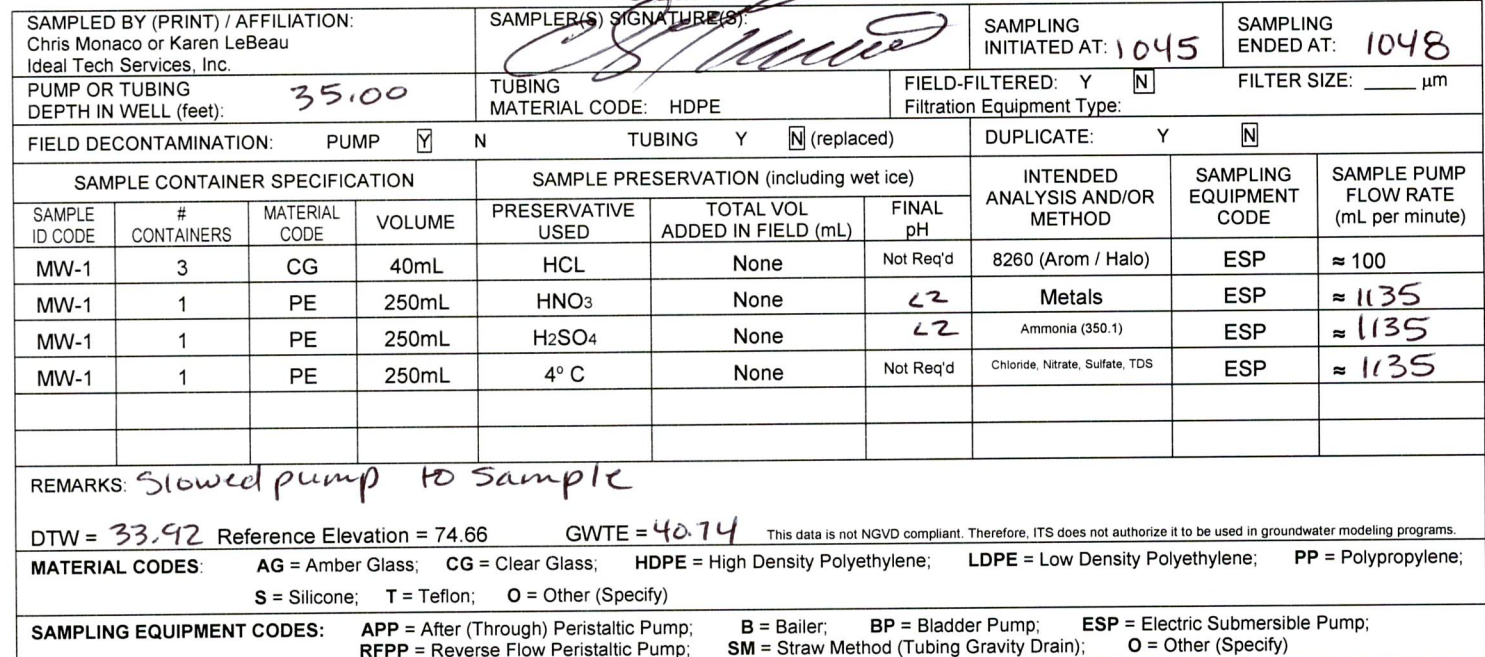 SAMPLED BY (PRINT) / AFFILIATION:
Chris Monaco or Karen LeBeau
Ideal Tech Services, Inc.
SAMPLER(S) SIGNATURE(S):
SAMPLING INITIATED AT: 1045
SAMPLING ENDED AT: 1048
PUMP OR TUBING
DEPTH IN WELL (feet): 35.00
TUBING
MATERIAL CODE: HDPE
FIELD-FILTERED: Y N FILTER SIZE: _____ μm
Filtration Equipment Type:
FIELD DECONTAMINATION: PUMP Y N TUBING Y N (replaced)
DUPLICATE: Y N
SAMPLE CONTAINER SPECIFICATION
SAMPLE PRESERVATION (including wet ice)
INTENDED ANALYSIS AND/OR METHOD
SAMPLING EQUIPMENT CODE
SAMPLE PUMP FLOW RATE (mL per minute)
SAMPLE ID CODE
# CONTAINERS
MATERIAL CODE
VOLUME
PRESERVATIVE USED
TOTAL VOL ADDED IN FIELD (mL)
FINAL pH
MW-1 3 CG 40mL HCL None Not Req'd 8260 (Arom / Halo) ESP ≈ 100
MW-1 1 PE 250mL HNO3 None <2 Metals ESP ≈ 1135
MW-1 1 PE 250mL H2SO4 None <2 Ammonia (350.1) ESP ≈ 1135
MW-1 1 PE 250mL 4° C None Not Req'd Chloride, Nitrate, Sulfate, TDS ESP ≈ 1135
REMARKS: Slowed pump to sample
DTW = 33.92 Reference Elevation = 74.66 GWTE = 40.74 This data is not NGVD compliant. Therefore, ITS does not authorize it to be used in groundwater modeling programs.
MATERIAL CODES: AG = Amber Glass; CG = Clear Glass; HDPE = High Density Polyethylene; LDPE = Low Density Polyethylene; PP = Polypropylene;
S = Silicone; T = Teflon; O = Other (Specify)
SAMPLING EQUIPMENT CODES: APP = After (Through) Peristaltic Pump; B = Bailer; BP = Bladder Pump; ESP = Electric Submersible Pump;
RFPP = Reverse Flow Peristaltic Pump; SM = Straw Method (Tubing Gravity Drain); O = Other (Specify)